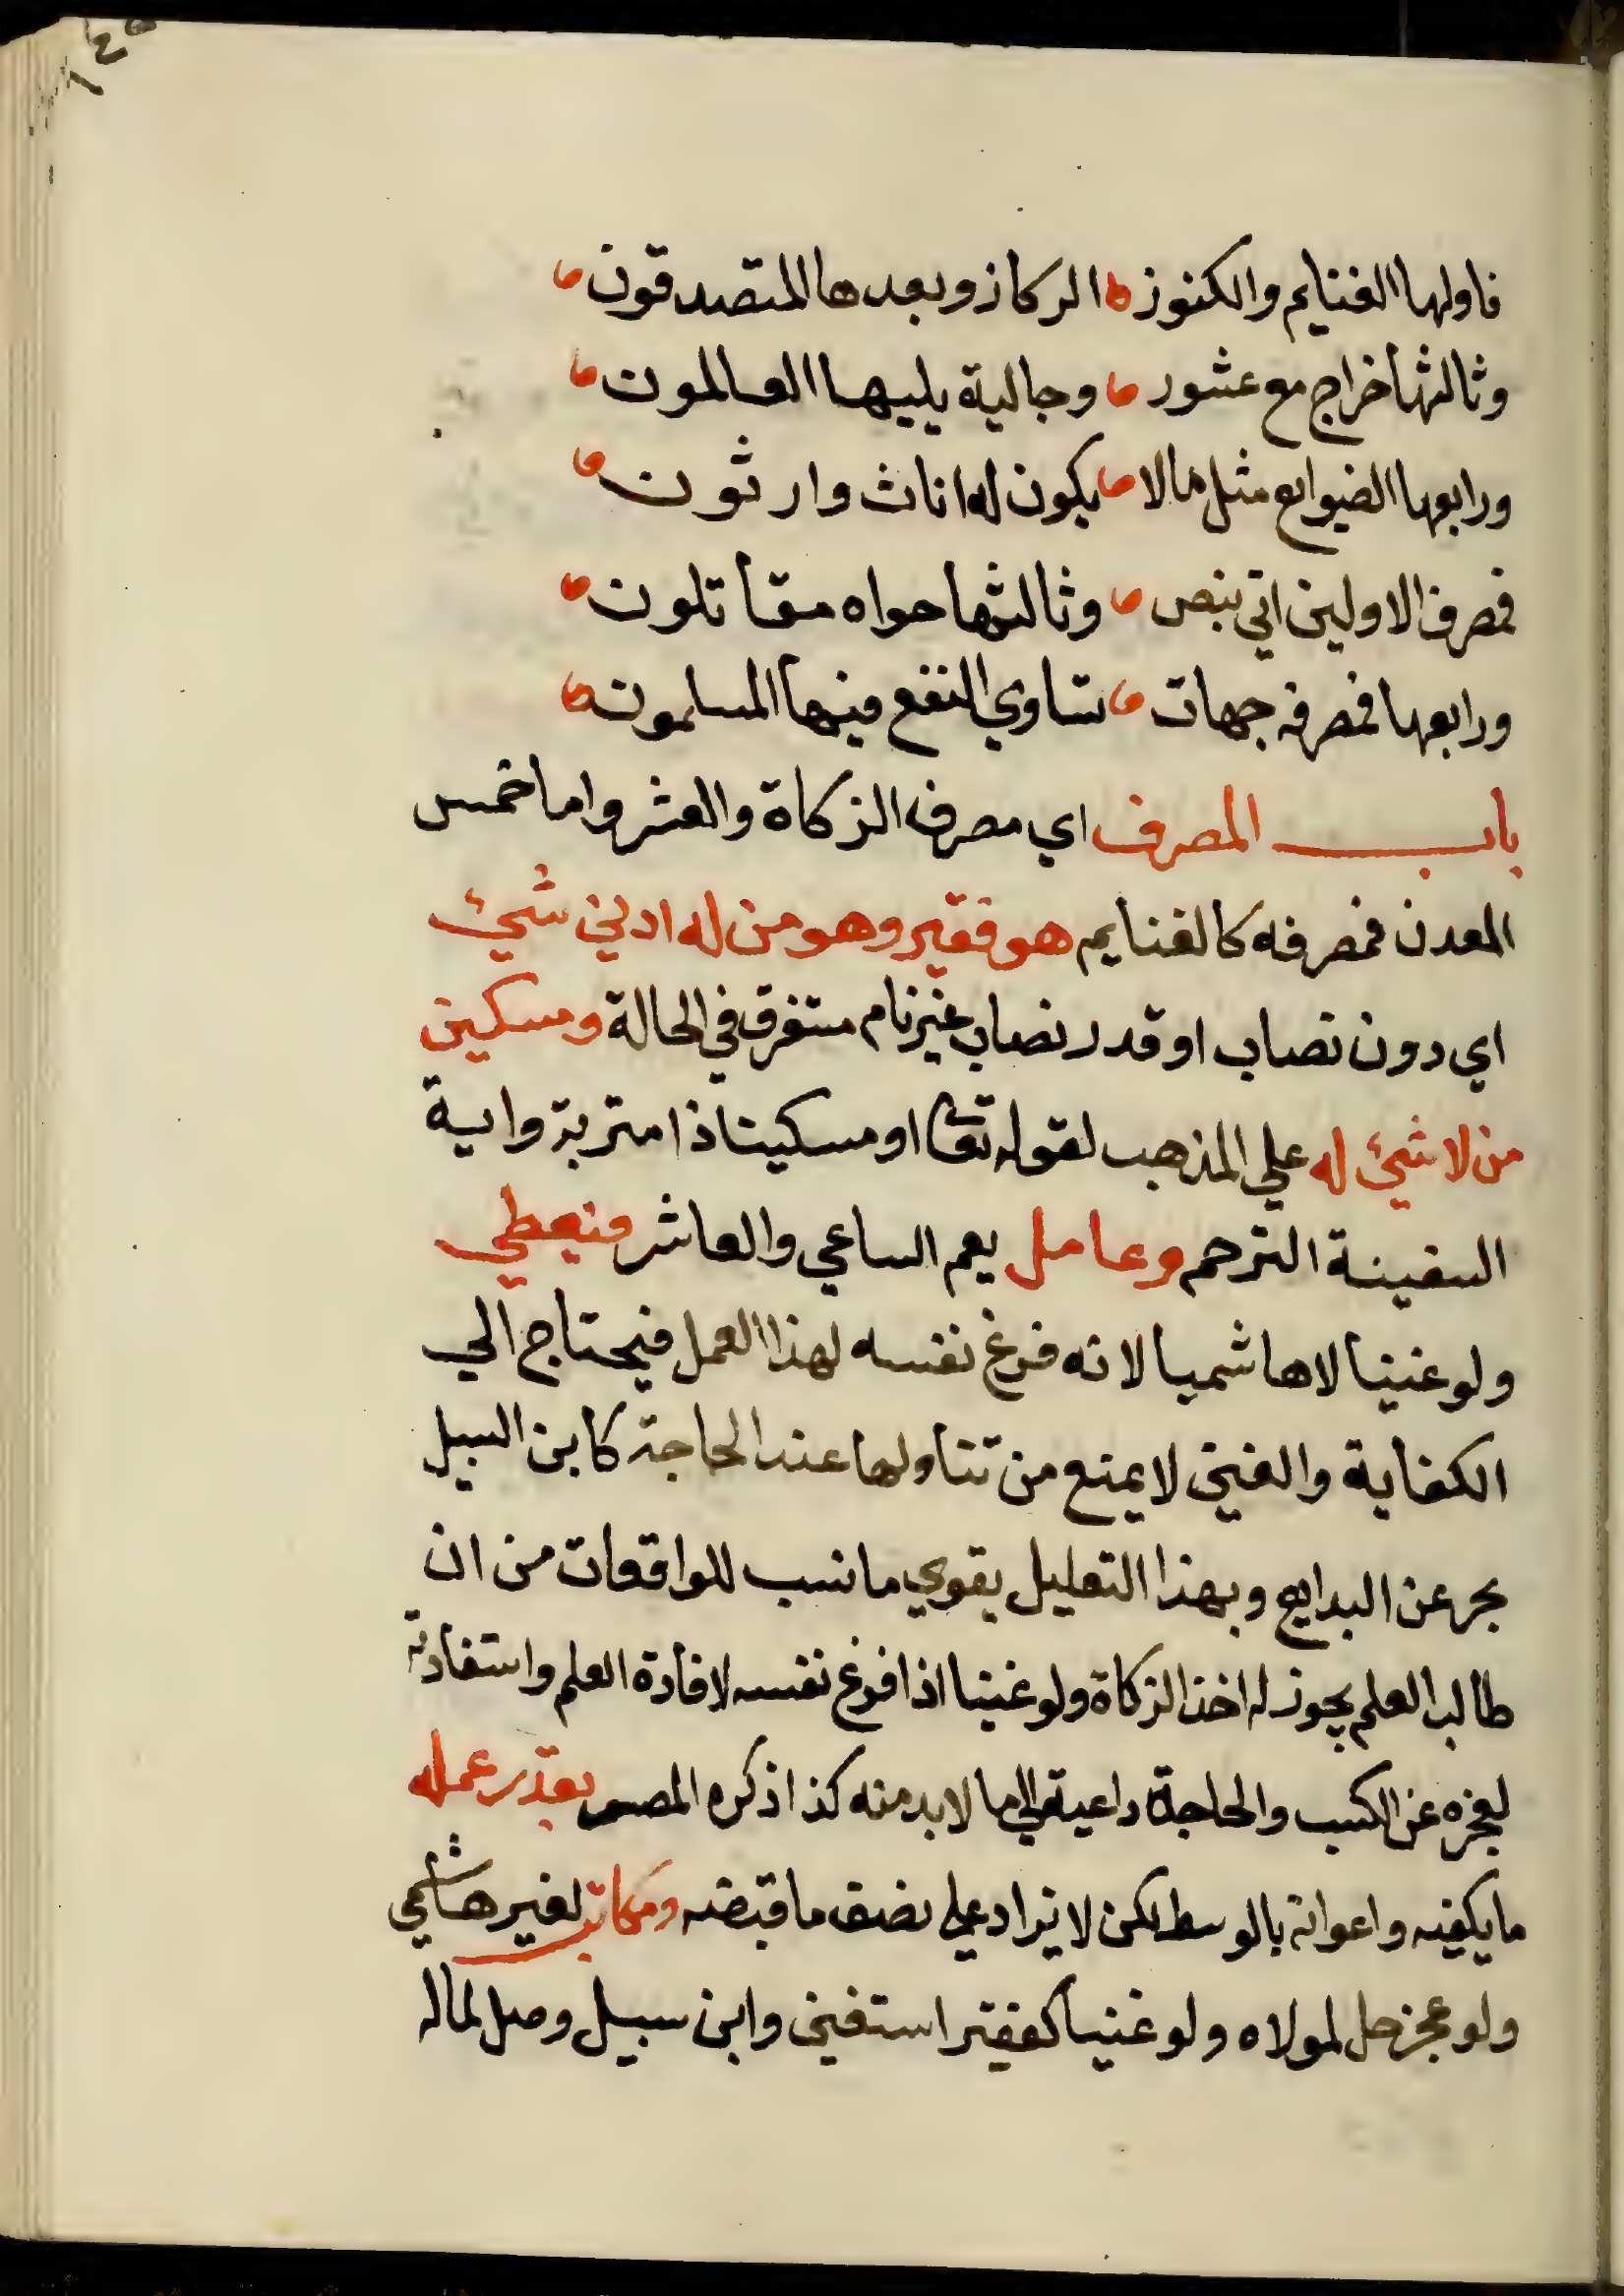 ١٤٥
فاولها الغنايم والكنوز الركاز وبعدها المتصدقون
وثالثها خراج مع عشور وجالية يليها العالمون
ورابعها الضوايع مثل مالا يكون له اناث وارثون
فمصرف الاولين اتي بنص وثالثها حواه مقاتلون
ورابعها فمصرفه جهات تساوي النفع فيها المسلمون
باب المصرف اي مصرف الزكاة والعشر واما خمس
المعدن فمصرفه كالغنايم هو فقير وهو من له ادني شيئ
اي دون نصاب او قدر نصاب غير نام مستغرق في الحالة ومسكين
من لا شيئ له علي المذهب لقوله تعا او مسكينا ذا متربة واية
السفينة الترحم وعامل يعم الساعي والعاشر فيعطي
ولو غنيا لا هاشميا لانه فرغ نفسه لهذا العمل فيحتاج الي
الكفاية والغني لا يمنع من تناولها عند الحاجة كابن السبيل
بحر عن البدايع وبهذا التعليل يقوي ما نسب للواقعات من ان
طالب العلم يجوز له اخذ الزكاة ولو غنيا اذا فرغ نفسه لافادة العلم واستفادته
لعجزه عن الكسب والحاجة داعية الي ما لابد منه كذا ذكره المصـ بقدر عمله
ما يكفيه واعوانه بالوسط لكن لا يزاد علي نصف ما قبضه ومكاتب لغير هاشمي
ولو عجز حل لمولاه ولو غنيا كفقير استغني وابن سبيل وصل لماله